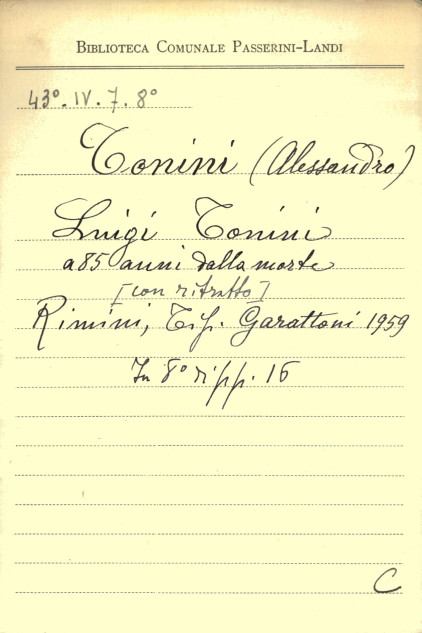 BIBLIOTECA COMUNALE PASSERINI-LANDI
43°. IV. 7. 8°
Tonini (Alessandro)
Luigi Tonini
a 85 anni dalla morte
[con ritratto]
Rimini, Tip. Garattoni 1959
In 8° di pp. 16
C